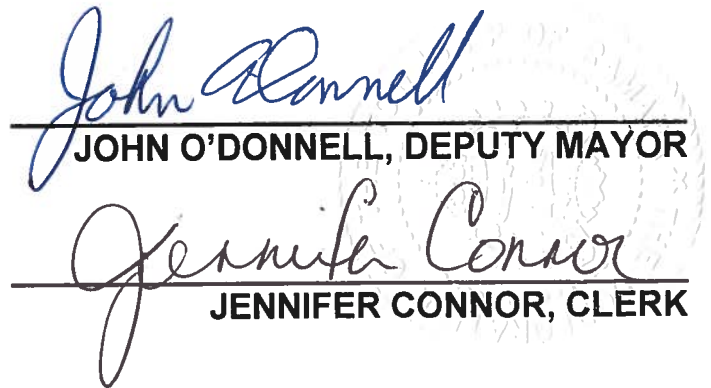 John O'Donnell
JOHN O'DONNELL, DEPUTY MAYOR
Jennifer Connor
JENNIFER CONNOR, CLERK